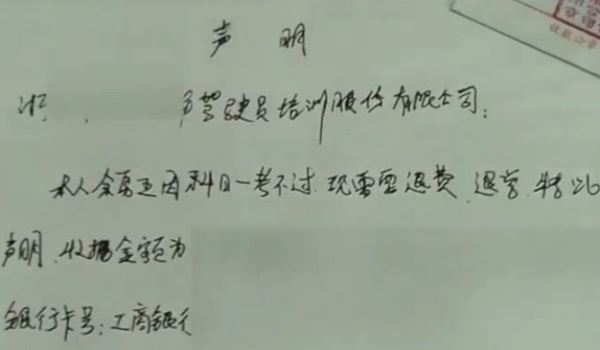 声明
驾驶员培训股份有限公司:
本人余 因科目一考不过.现需要退费.退学.特此
声明.收据金额为
银行卡号:工商银行